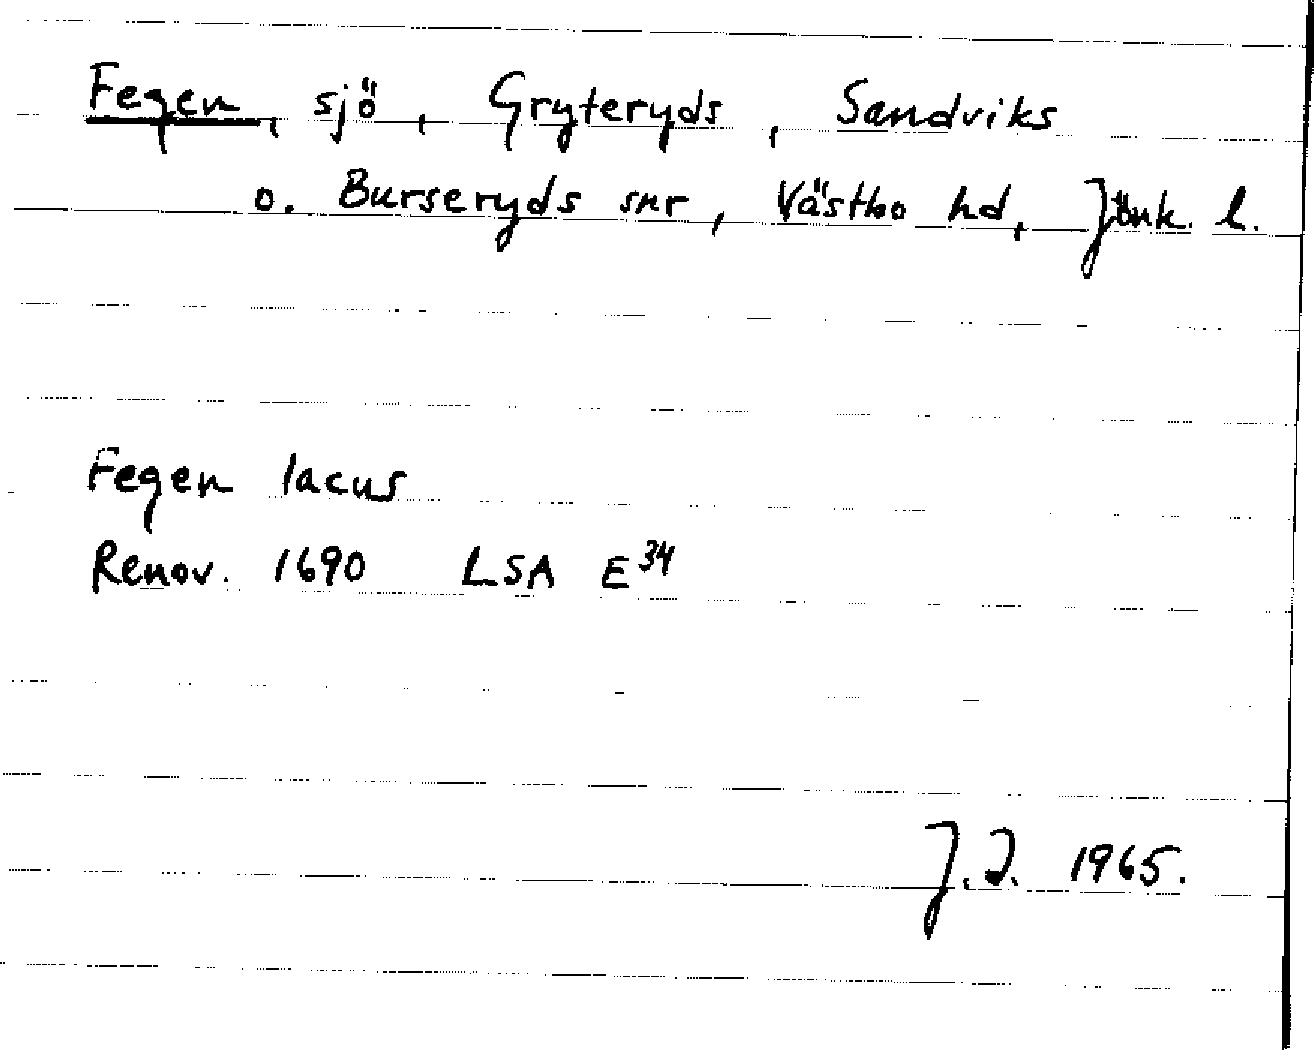 Fegen, sjö, Gryteryds, Sandviks
o. Burseryds snr, Västbo hd, Jönk. l.
Fegen lacus
Renov. 1690 LSA E³⁴
J.I. 1965.